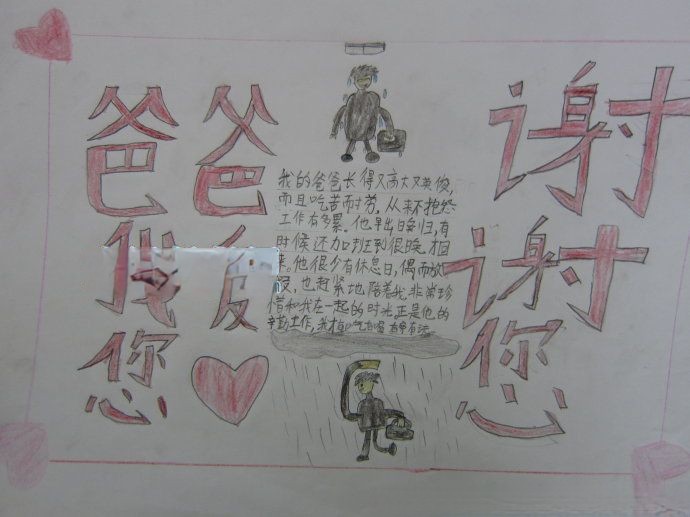 爸爸
我爱
您
我的爸爸长得又高大又英俊,
而且吃苦耐劳,从来不抱怨
工作有多累。他早出晚归,有
时候还加班到很晚才回
来。他很少有休息日,偶而放
假,也赶紧地陪着我,非常珍
惜和我在一起的时光正是他的
辛勤工作,我才有吃有喝
谢
谢
您